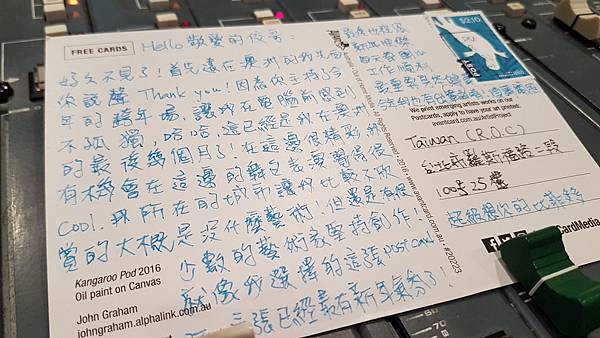 FREE CARDS
Hello 敬愛的佼哥：
好久不見了！首先遠在澳洲的我先向
你說聲 Thank you！因為你主持了今
年的跨年場，讓我在電腦前感到
不孤獨，哈哈，這已經是我在澳洲
的最後幾個月了！在這邊很精彩，
有機會在這邊的舞台表演覺得很
Cool. 我所在的城市讓我比較不欣
賞的大概是沒什麼藝術！但還是有很
少數的藝術家堅持創作！
就像我選擇的這張 postcard
已經最有新年氣氛了！
Kangaroo Pod 2016
Oil paint on Canvas
John Graham
johngraham.alphalink.com.au
All Rights Reserved - 2016 - www.avantcard.com.au - #20223
$2.10
最後也祝你
工作順利
We print emerging artists works on our
Postcards, apply to have your art printed:
avantcard.com.au/ArtistProject
Taiwan (R.O.C)
台北市羅斯福路二段
100號25樓
CardMedia